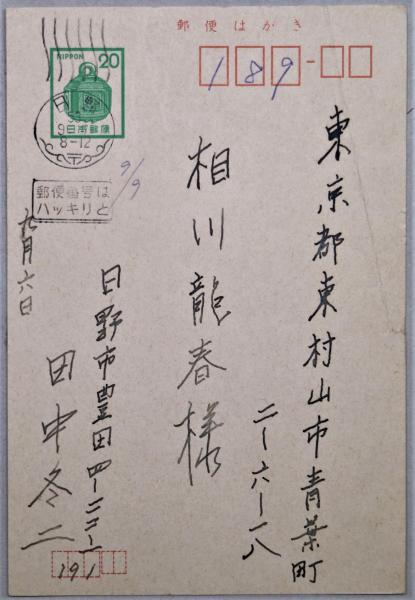 郵便はがき
NIPPON 20
189
日本郵便
8-12
郵便番号は
ハッキリと
9/9
東京都東村山市青葉町
二ー六ー一八
相川龍春様
九月六日
日野市豊田四ー二二ー一
田中冬二
191